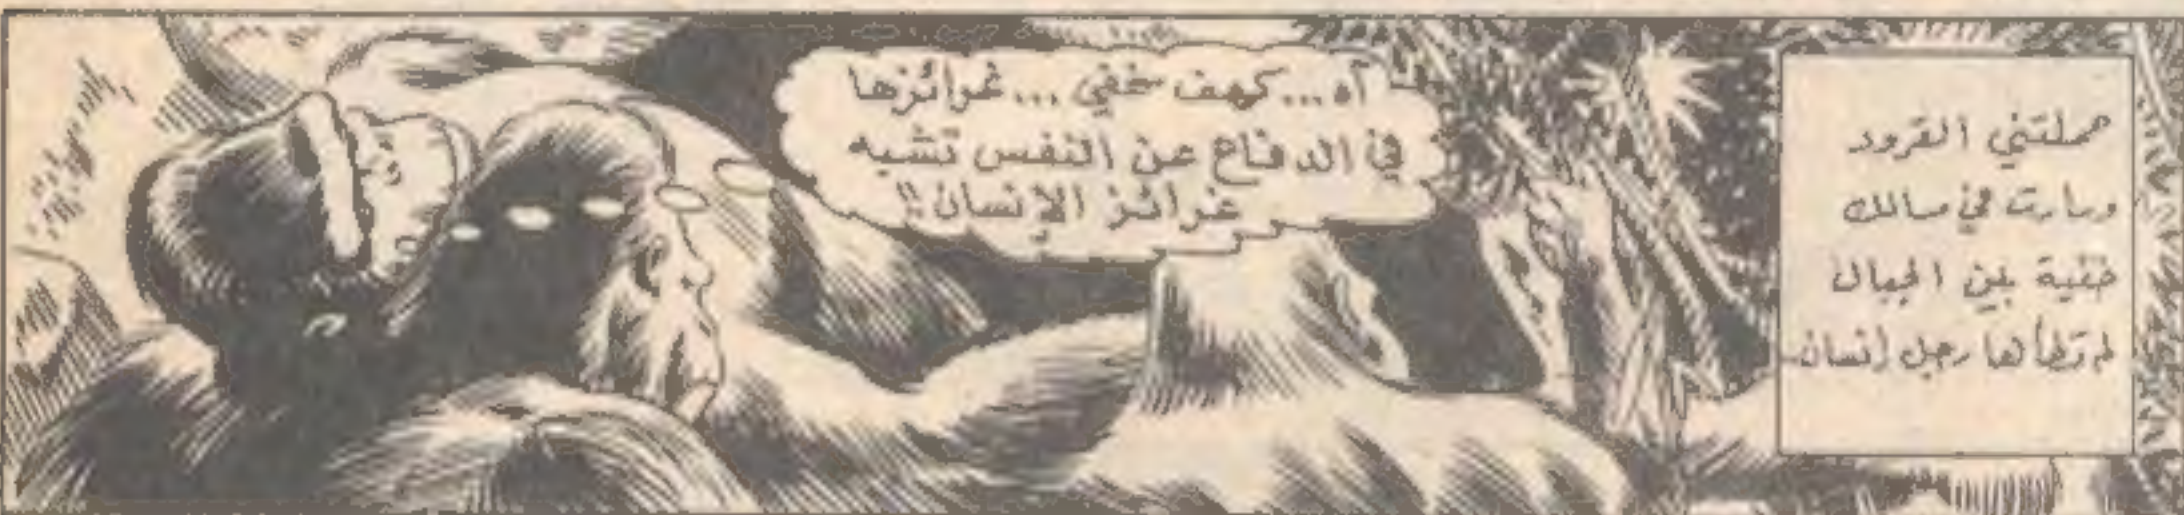 حملتني القرود
وسارت في مسالك
خفية بين الجبال
لم تطأها رجل إنسان
آه... كهف خفي... غرائزها
في الدفاع عن النفس تشبه
غرائز الإنسان!!